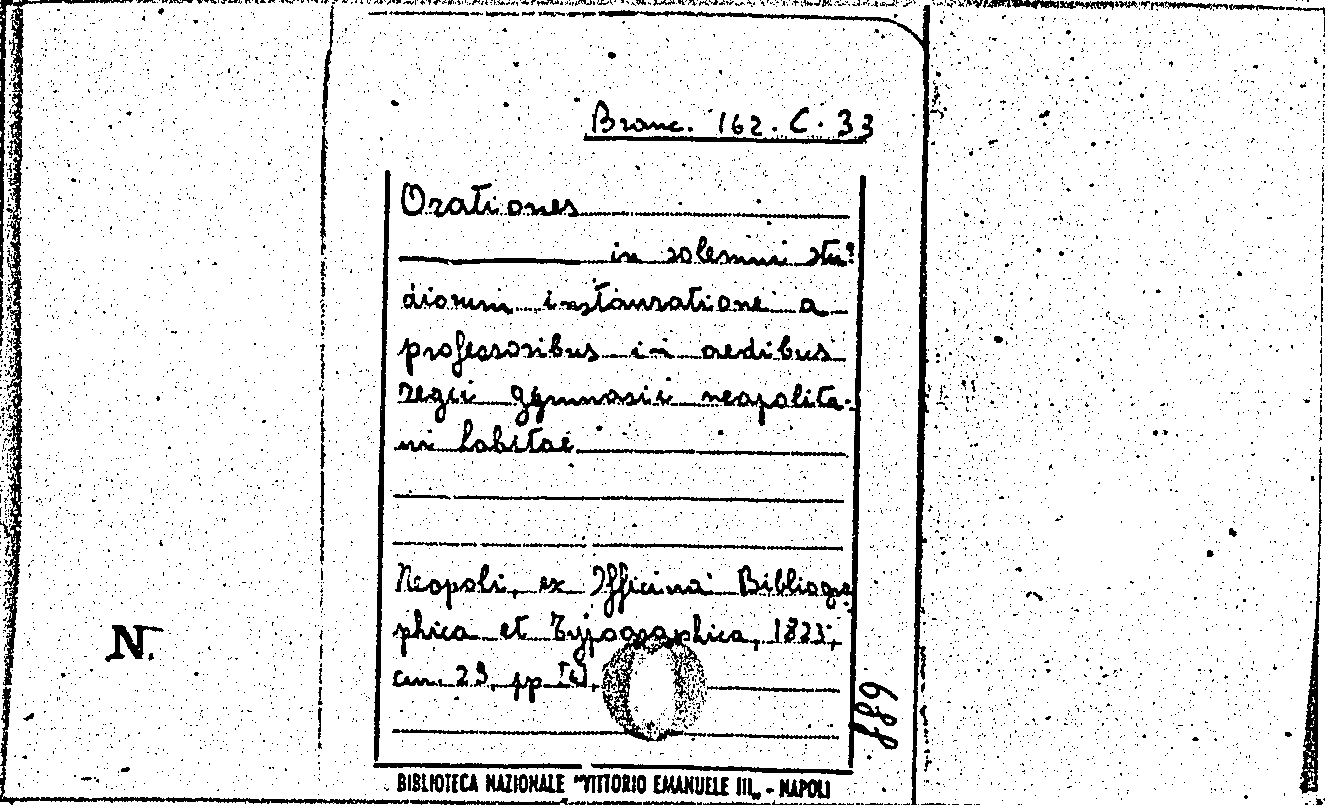 Branc. 162. C. 33
Orationes
in solemni stu-
diorum instauratione a
professoribus in aedibus
regii gymnasii neapolita-
ni habitae
Neapoli, ex Officina Bibliogra-
phica et Typographica, 1823;
cm. 23, pp
889
N.
BIBLIOTECA NAZIONALE "VITTORIO EMANUELE III" - NAPOLI